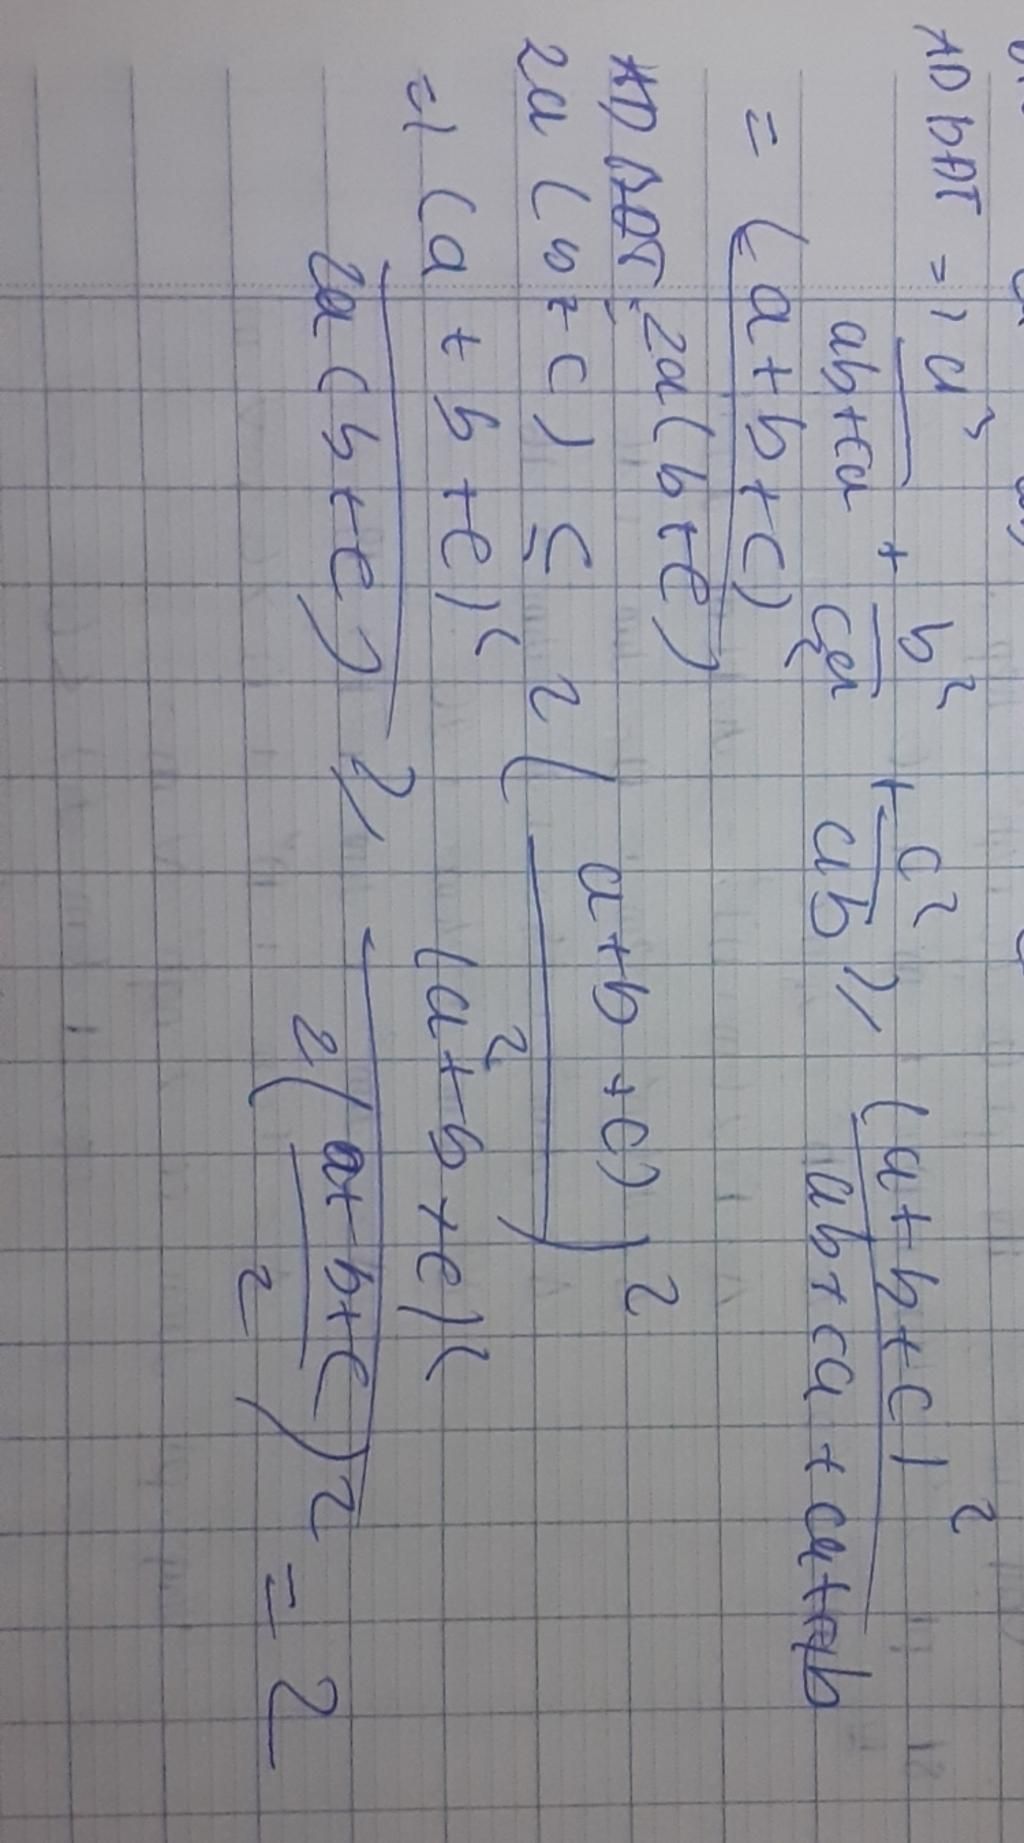 AD bĐT => a² / ab+ca + b² / ca + c² / ab ≥ (a+b+c)² / ab+ca+ca+ab
= (a+b+c) / 2a(b+c)
AD BĐT:
2a(b+c) ≤ 2(a+b+c / 2)²
=> (a+b+c)² / 2a(b+c) ≥ (a+b+c)² / 2(a+b+c / 2)² = 2